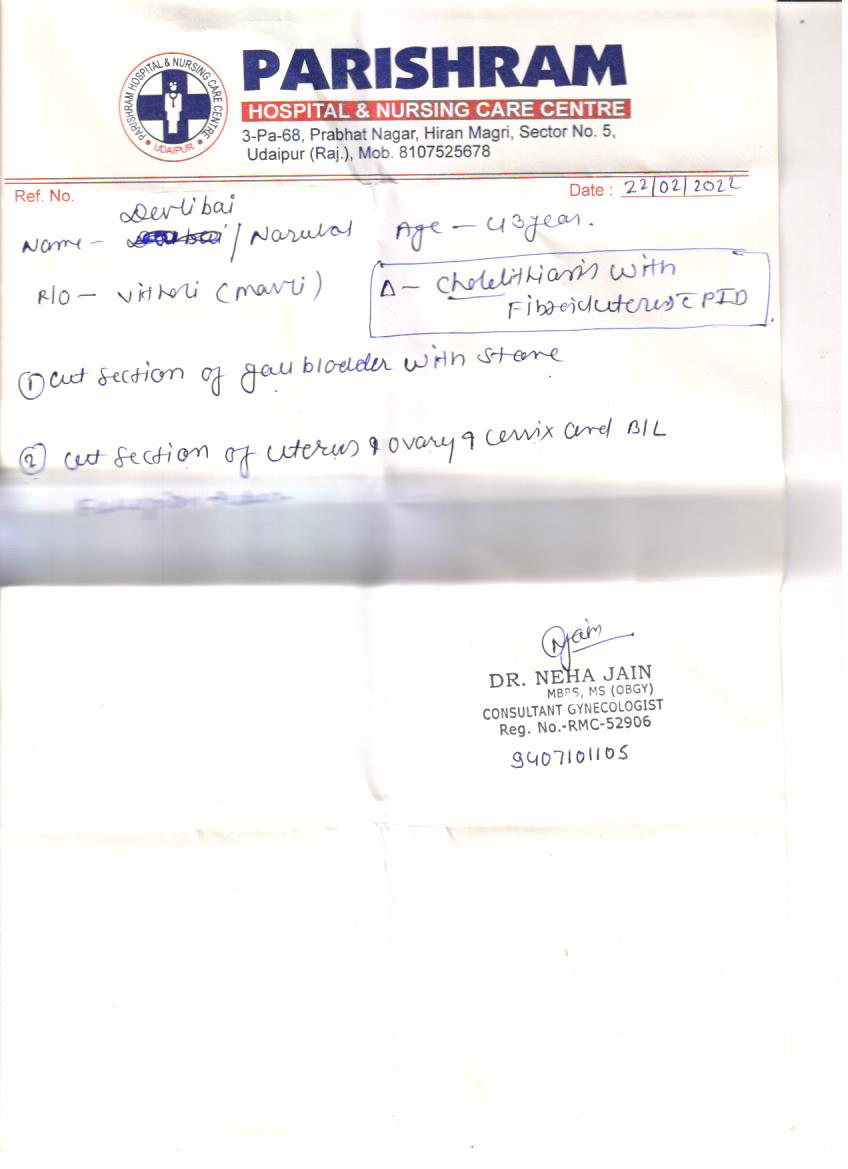 PARISHRAM HOSPITAL & NURSING CARE CENTRE
UDAIPUR
PARISHRAM
HOSPITAL & NURSING CARE CENTRE
3-Pa-68, Prabhat Nagar, Hiran Magri, Sector No. 5,
Udaipur (Raj.), Mob. 8107525678
Ref. No.
Date : 22/02/2022
Devlibai
Name - / Age - 43 year.
R/O - (mavli)
Δ - Cholelithiasis with
Fibroid uterus c̄ PID
① cut section of gall bladder with stone
② cut section of uterus & ovary & cervix and B/L
Njain
DR. NEHA JAIN
MBBS, MS (OBGY)
CONSULTANT GYNECOLOGIST
Reg. No.-RMC-52906
9407101105